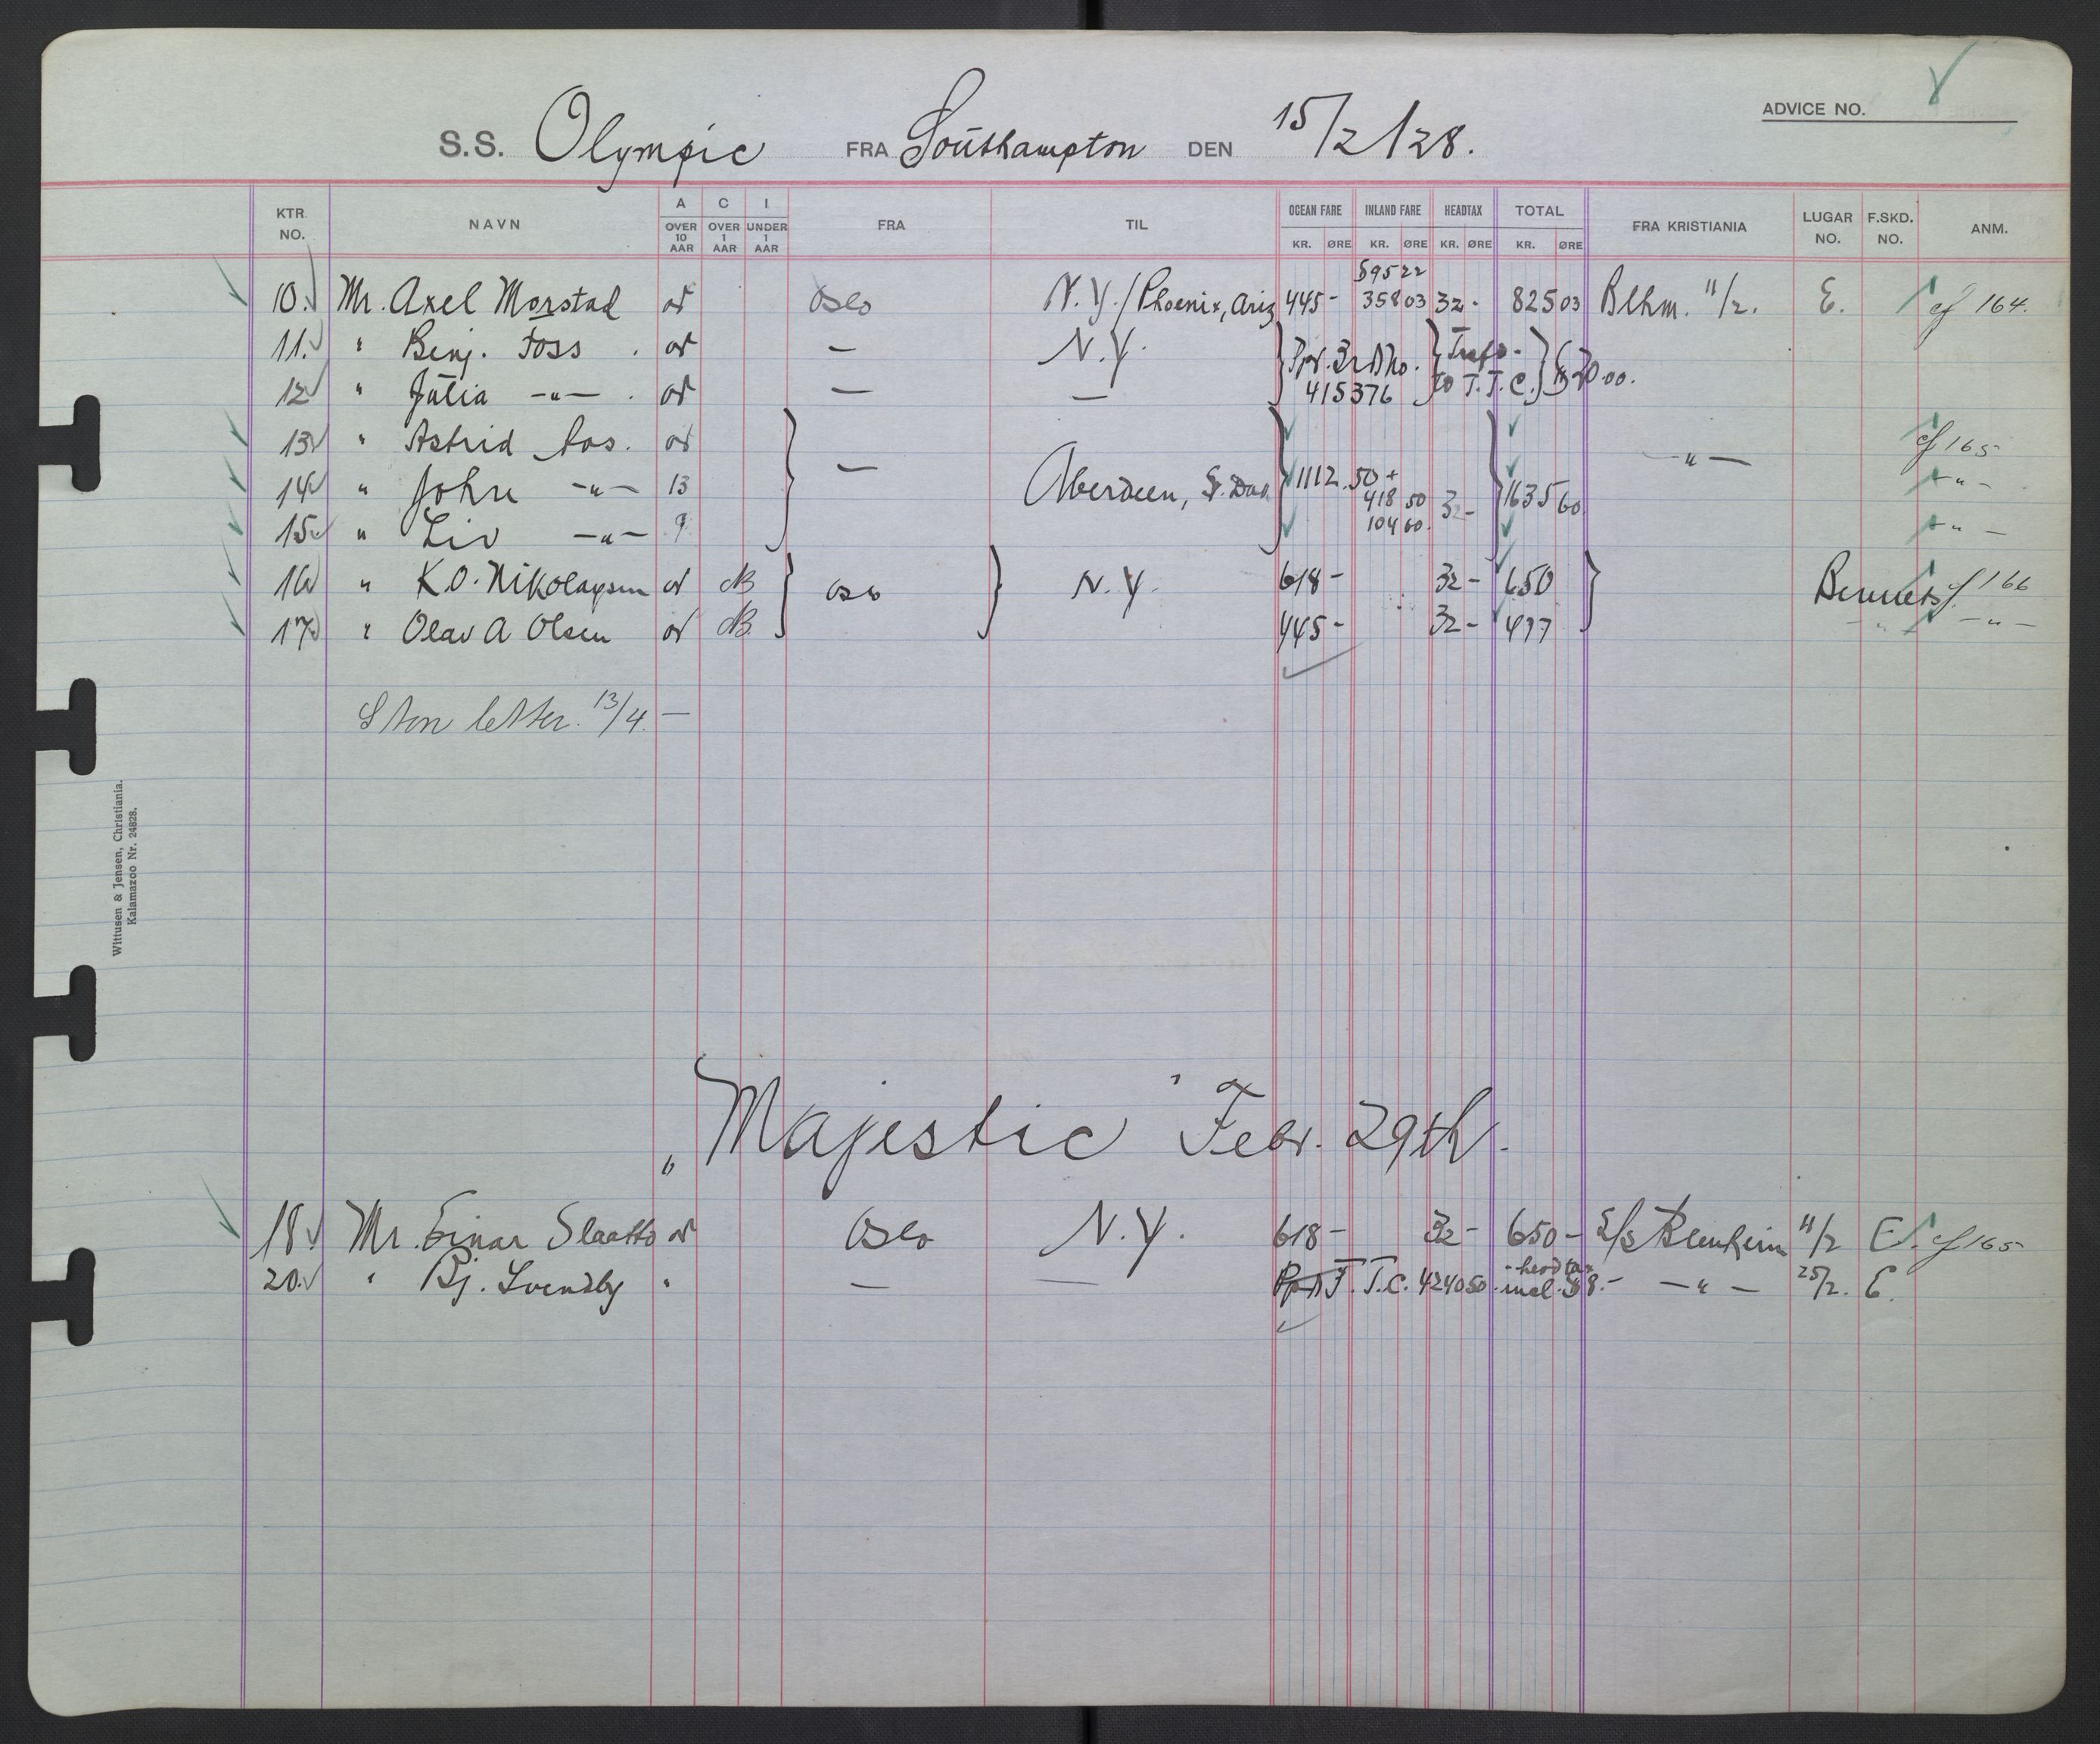 ADVICE NO.
S.S. Olympic FRA Southampton DEN 15/2/28.
KTR. NO. NAVN A OVER 10 AAR C OVER 1 AAR I UNDER 1 AAR FRA TIL OCEAN FARE KR. ØRE INLAND FARE KR. ØRE HEADTAX KR. ØRE TOTAL KR. ØRE FRA KRISTIANIA LUGAR NO. F.SKD. NO. ANM.
$95 22
10. Mr. Axel Morstad Oslo N.Y./Phoenix, Ariz 445- 358 03 32- 825 03 Blhm. 11/2. E. cf 164.
11. " Benj. Foss . — N.Y.
12 " Julia -"- . — — 415376 to T.T.C.
13 " Astrid cf 165
14 " John -"- 13 — Aberdeen, S. Dak. 1112.50 + 418 50 32- 1635 60 -"- -"-
15 " Liv -"- 9 104 60. -"-
16 " K.O. Nikolaysen Oslo N.Y. 618- 32- 650 Bennets cf 166
17 " Olav A Olsen 445- 32- 477 -"-
letter. 13/4 —
Wittusen & Jensen, Christiania.
Kalamazoo Nr. 24828.
„Majestic" Febr. 29th.
18 Mr. Einar Slaatto Oslo N.Y. 618- 32- 650- S/S Blenheim 11/2 E. cf 165
20. " Bj. Svendby " — — T.C. 424050 headtax incl. -"- 25/2. E.